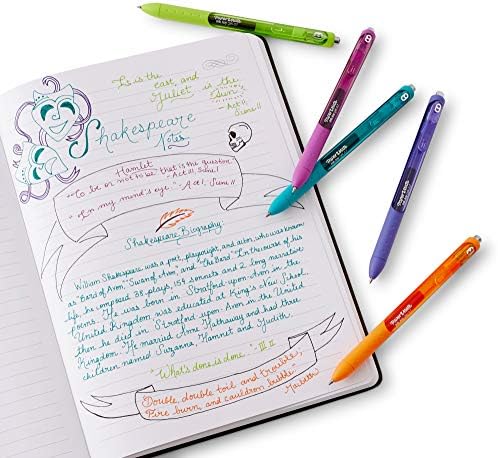 It is the
east, and
Juliet is the
sun.
- Act II,
Scene II
Shakespeare
Notes
Hamlet
"To be or not to be, that is the question"
- Act III, Scene I
"In my mind's eye." - Act I, Scene II
Shakespeare Biography:
William Shakespeare was a poet, playwright, and actor, who was known
as "Bard of Avon", "Swan of Avon", and "The Bard". In the course of his
life, he composed 38 plays, 154 sonnets and 2 long narrative
poems. He was born in Stratford-upon-Avon in the
United Kingdom, was educated at King's New School,
then he died in Stratford-upon-Avon in the United
Kingdom. He married Anne Hathaway and had three
children named Suzanna, Hamnet and Judith.
"What's done is done." - III II
Double, double toil and trouble,
Fire burn, and cauldron bubble
Macbeth
Paper Mate
Paper Mate
Paper Mate
Paper Mate
Paper Mate